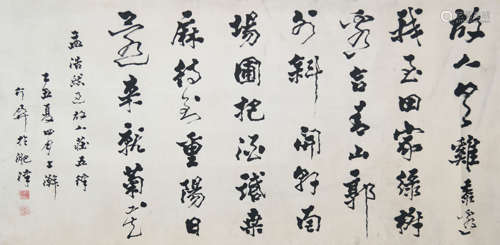 故人具雞黍邀
我至田家綠樹
邊合青山郭
外斜開軒面
場圃把酒話桑
麻待到重陽日
還來就菊花
孟浩然過故人莊五律
丁丑夏四月上澣
於肥